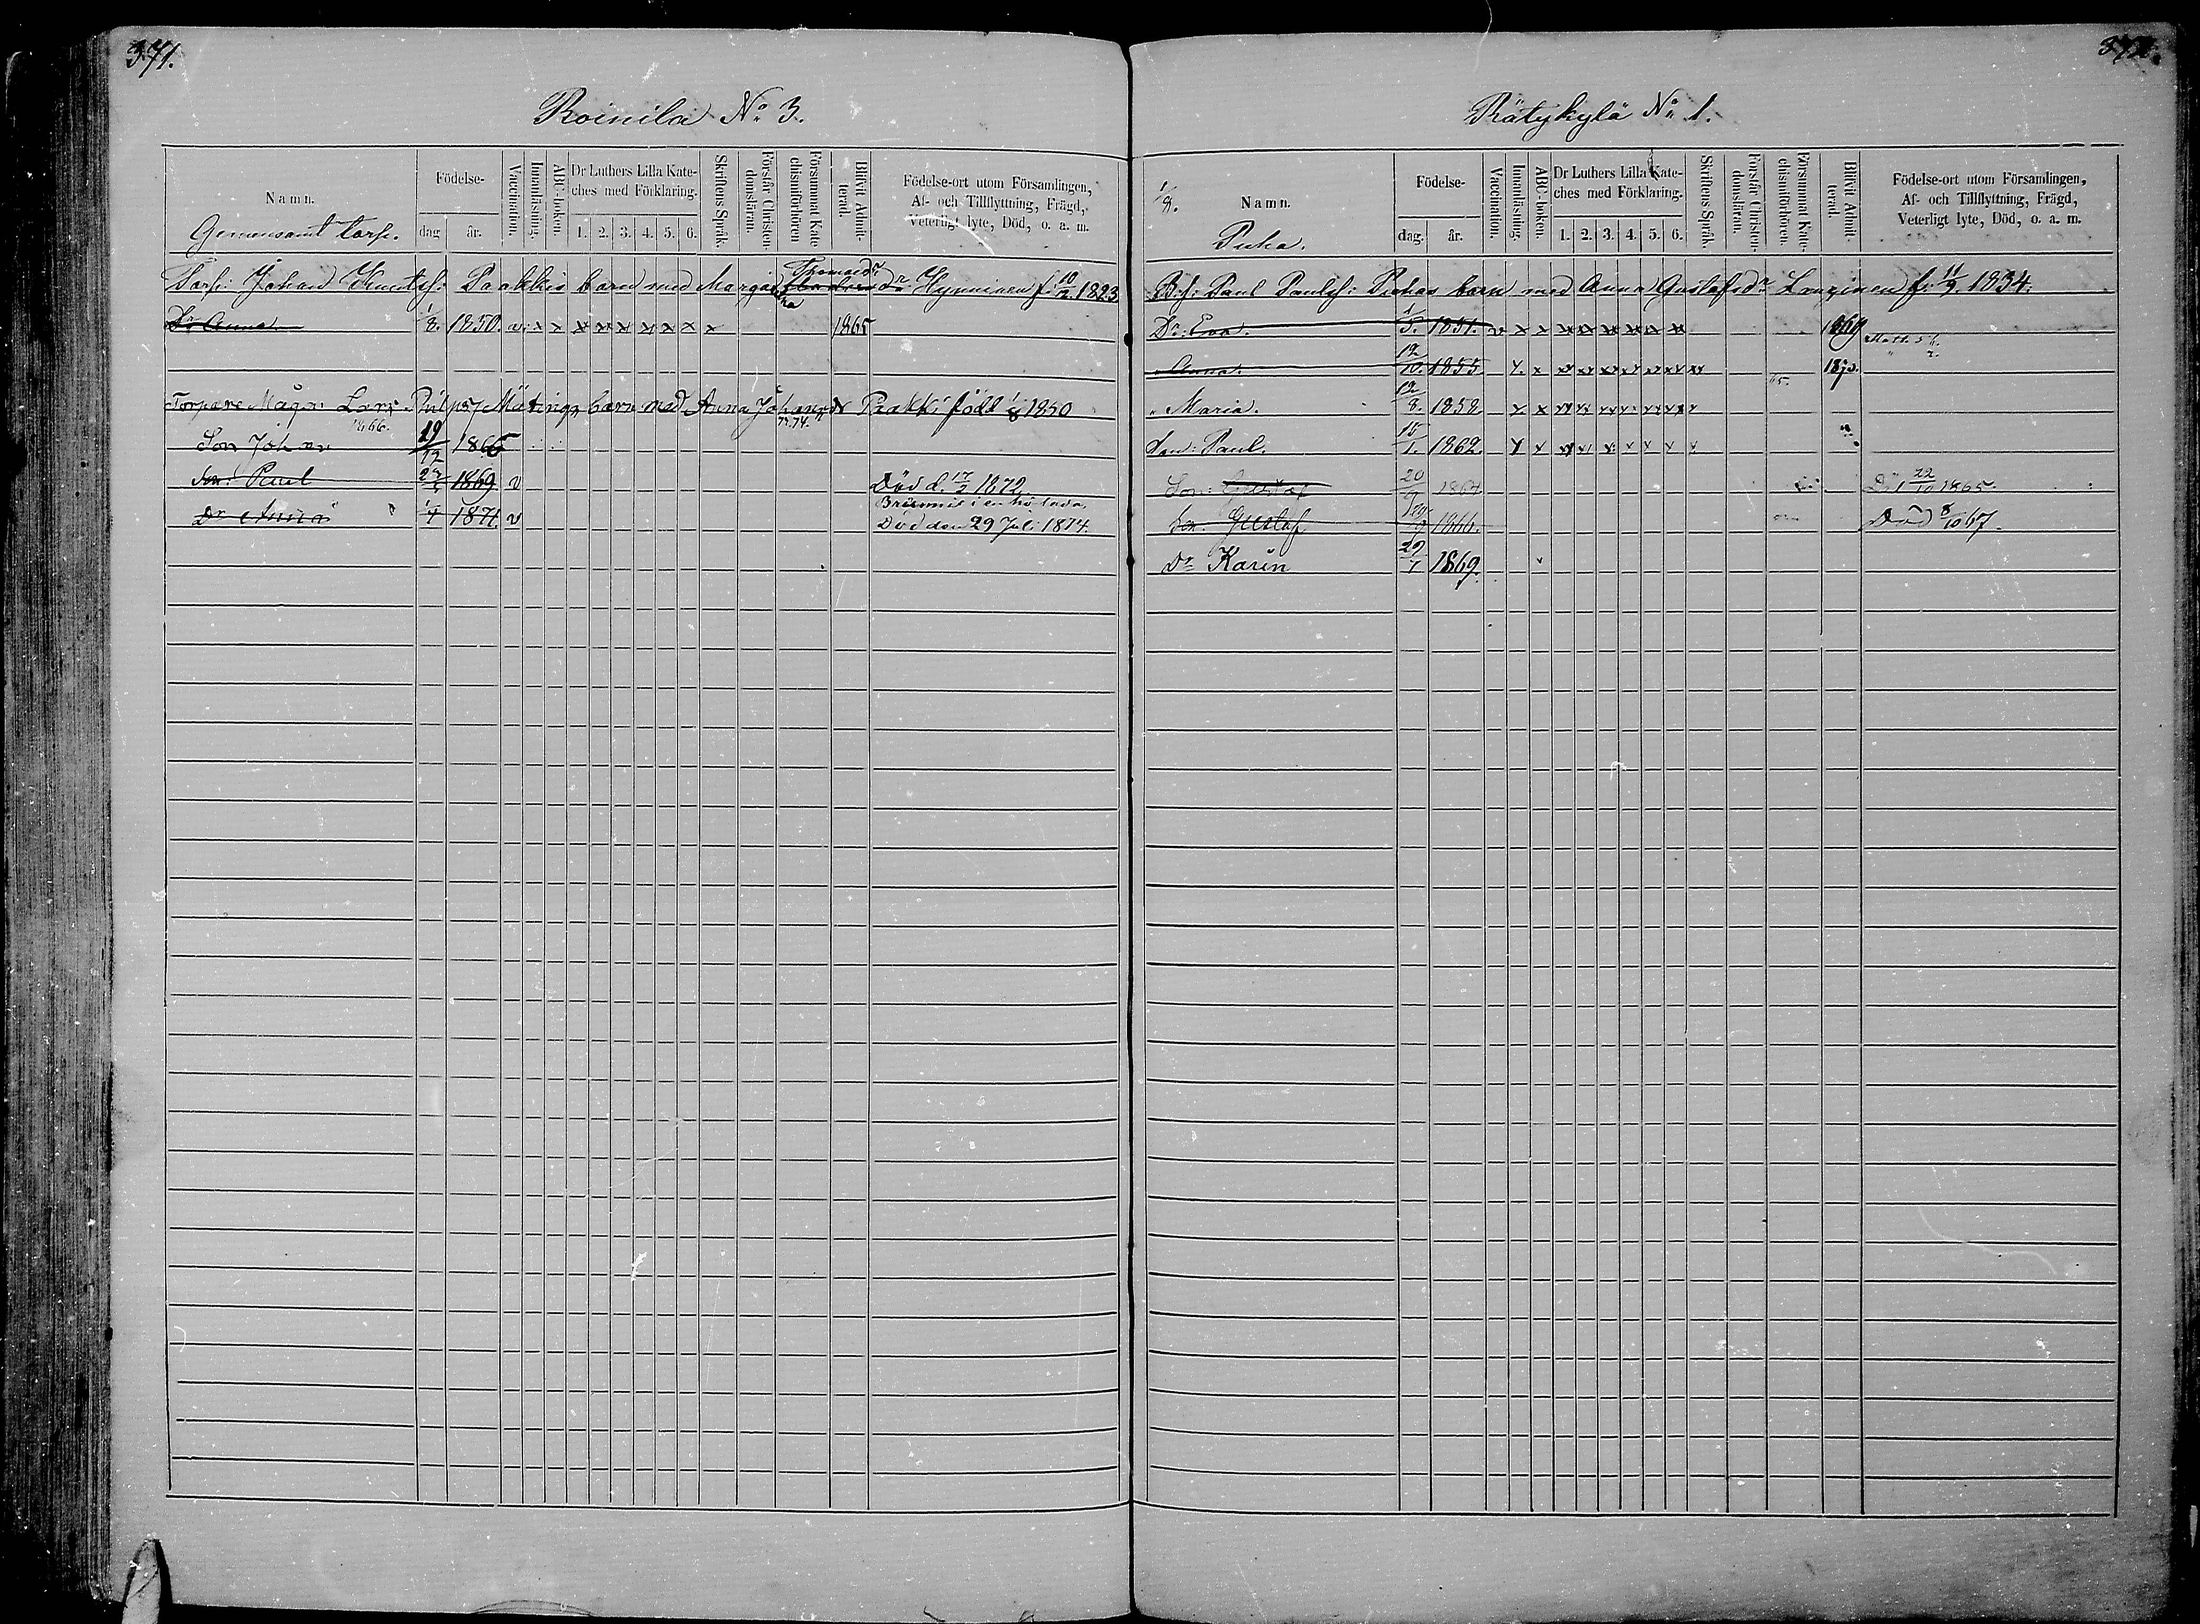 371.
Roinila No 3.
Namn.
Gemensamt torp.
Födelse-
dag
år.
Vaccination.
Innanläsning.
ABC-boken.
Dr Luthers Lilla Kate-
ches med Förklaring.
1. 2. 3. 4. 5. 6.
Skriftens Språk.
Förstår Christen-
domsläran.
Försummat Kate-
chismiförhören
Blifvit Admit-
terad.
Födelse-ort utom Församlingen,
Af- och Tillflyttning, Frägd,
Veterligt lyte, Död, o. a. m.
Torp: Johan Paakkis barn med Margaretha Thomasdr Hynninen f. 10/2 1823
Dr Anna. 1/8. 1850. v. x x x x x x x x x 1865
Torpare Mågen Lars Mätings barn med Anna Johansdr Paakki född 1/8 1850
1866.
Son Johan 19/12 1866
Son Paul 1869 v Död d. 17/2 1872
Dr Anna 1/4 1871 v Död den 29 Juli 1874.
372.
Rätykylä No 1.
1/8.
Namn.
Puha.
Födelse-
dag.
år.
Vaccination.
Innanläsning.
ABC-boken.
Dr Luthers Lilla Kate-
ches med Förklaring.
1. 2. 3. 4. 5. 6.
Skriftens Språk.
Förstår Christen-
domsläran.
Försummat Kate-
chismiförhören.
Blifvit Admit-
terad.
Födelse-ort utom Församlingen,
Af- och Tillflyttning, Frägd,
Veterligt lyte, Död, o. a. m.
Paul Paulsf: Puhas barn med Anna Gustafsdr f. 11/2 1834.
Dr: Eva. 1/5. 1851. v x x xx xx xx xx xx xx 1869
" Anna. 12/10. 1855. x. x xx xx xx xx xx xx xx 1872.
" Maria. 12/8. 1858. x x xx xx xx xx xx xx
Son: Paul. 15/1. 1862. x x xx x x x x x x
Son: Gustaf 20/9 1864 Död 22/10 1865.
Son Gustaf 1866. Död 8/10 67.
Dr Karin 29/1 1869.